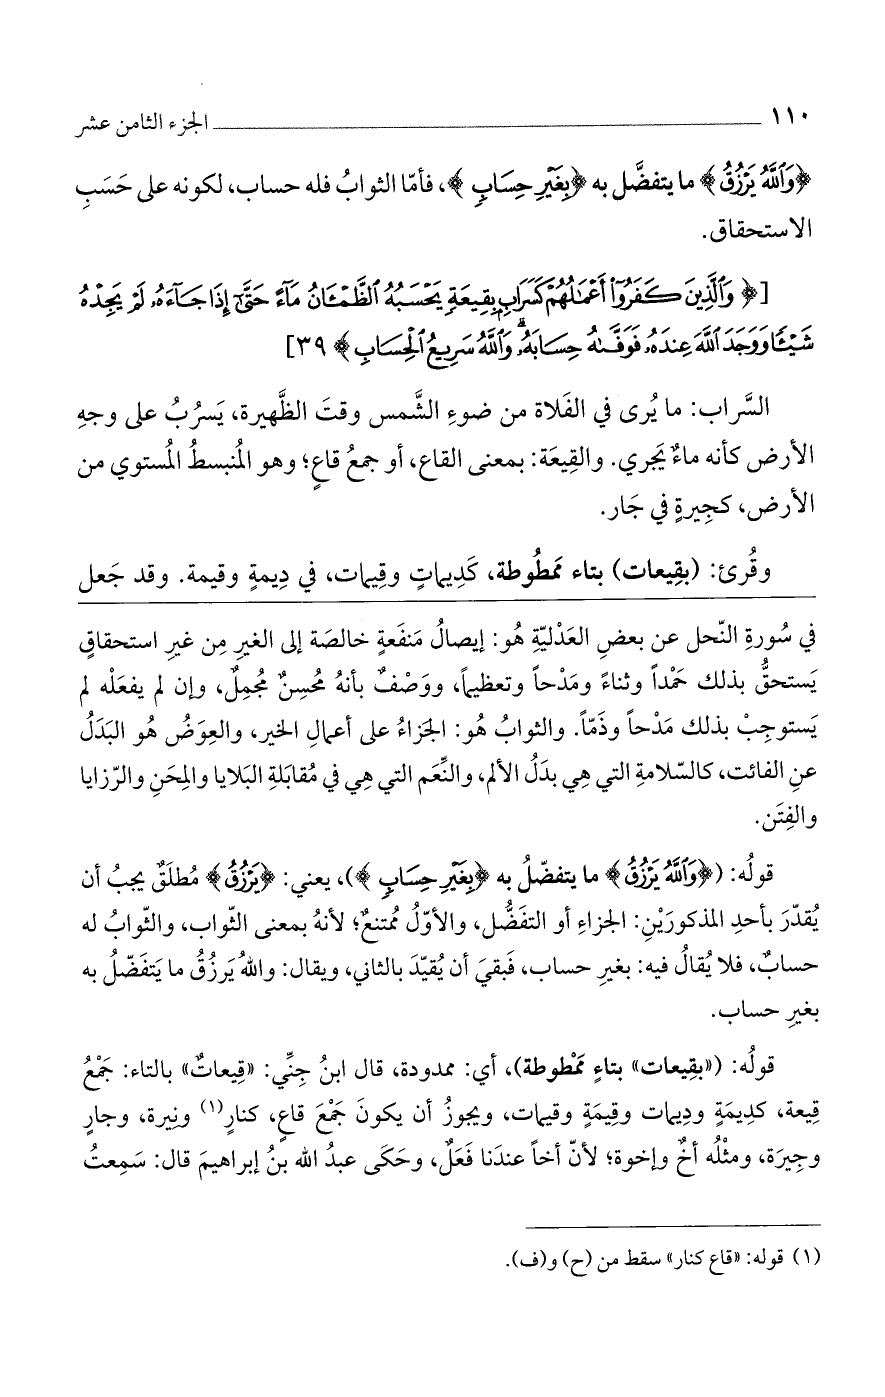 ١١٠ ــــــــــــــــــــــــــــــــــــــــ الجزء الثامن عشر
﴿وَٱللَّهُ يَرْزُقُ﴾ ما يتفضَّل به ﴿بِغَيْرِ حِسَابٍ﴾، فأمّا الثوابُ فله حساب، لكونه على حَسَبِ
الاستحقاق.
[﴿وَٱلَّذِينَ كَفَرُوٓا۟ أَعْمَـٰلُهُمْ كَسَرَابٍۭ بِقِيعَةٍ يَحْسَبُهُ ٱلظَّمْـَٔانُ مَآءً حَتَّىٰٓ إِذَا جَآءَهُۥ لَمْ يَجِدْهُ
شَيْـًٔا وَوَجَدَ ٱللَّهَ عِندَهُۥ فَوَفَّىٰهُ حِسَابَهُۥ ۗ وَٱللَّهُ سَرِيعُ ٱلْحِسَابِ﴾ ٣٩]
السَّراب: ما يُرى في الفَلاة من ضوءِ الشَّمس وقتَ الظَّهيرة، يَسرُبُ على وجهِ
الأرض كأنه ماءٌ يَجري. والقِيعَة: بمعنى القاع، أو جمعُ قاعٍ؛ وهو المُنبسطُ المُستوي من
الأرض، كجِيرةٍ في جَار.
وقُرئ: (بقِيعات) بتاء مَمطُوطة، كَدِيماتٍ وقِيمات، في دِيمةٍ وقيمة. وقد جَعل
في سُورةِ النّحل عن بعضِ العَدْليّةِ هُو: إيصالُ مَنفَعةٍ خالصَة إلى الغيرِ مِن غيرِ استحقاقٍ
يَستحقُّ بذلك حَمْداً وثناءً ومَدْحاً وتعظيماً، ووَصْفٌ بأنهُ مُحسِنٌ مُجمِلٌ، وإن لم يفعَلْه لم
يَستوجِبْ بذلك مَدْحاً وذَمّاً. والثوابُ هُو: الجَزاءُ على أعمالِ الخير، والعِوَضُ هُو البَدَلُ
عنِ الفائت، كالسّلامةِ التي هِي بدَلُ الألم، والنِّعَم التي هِي في مُقابَلةِ البَلايا والمِحَنِ والرّزايا
والفِتَن.
قولُه: (﴿وَٱللَّهُ يَرْزُقُ﴾ ما يتفضّلُ به ﴿بِغَيْرِ حِسَابٍ﴾)، يعني: ﴿يَرْزُقُ﴾ مُطلَقٌ يجبُ أن
يُقدّرَ بأحدِ المذكورَيْنِ: الجزاءِ أو التفَضُّل، والأوّلُ مُمتنعٌ؛ لأنهُ بمعنى الثّواب، والثّوابُ له
حسابٌ، فلا يُقالُ فيه: بغيرِ حساب، فَبقيَ أن يُقيّدَ بالثاني، ويقال: واللهُ يَرزُقُ ما يَتفَضّلُ به
بغيرِ حساب.
قولُه: («بقِيعات» بتاءٍ مَمْطوطة)، أي: ممدودة، قال ابنُ جِنِّي: «قِيعاتٌ» بالتاء: جَمْعُ
قِيعة، كدِيمَةٍ ودِيمات وقِيمَةٍ وقيمات، ويجوزُ أن يكونَ جَمْعَ قاعٍ، كنارٍ(١) ونِيرة، وجارٍ
وجِيرَة، ومثْلُه أخٌ وإخوة؛ لأنّ أخاً عندَنا فَعَلٌ، وحَكَى عبدُ الله بنُ إبراهيمَ قال: سَمِعتُ
(١) قوله: «قاع كنار» سقط من (ح) و(ف).